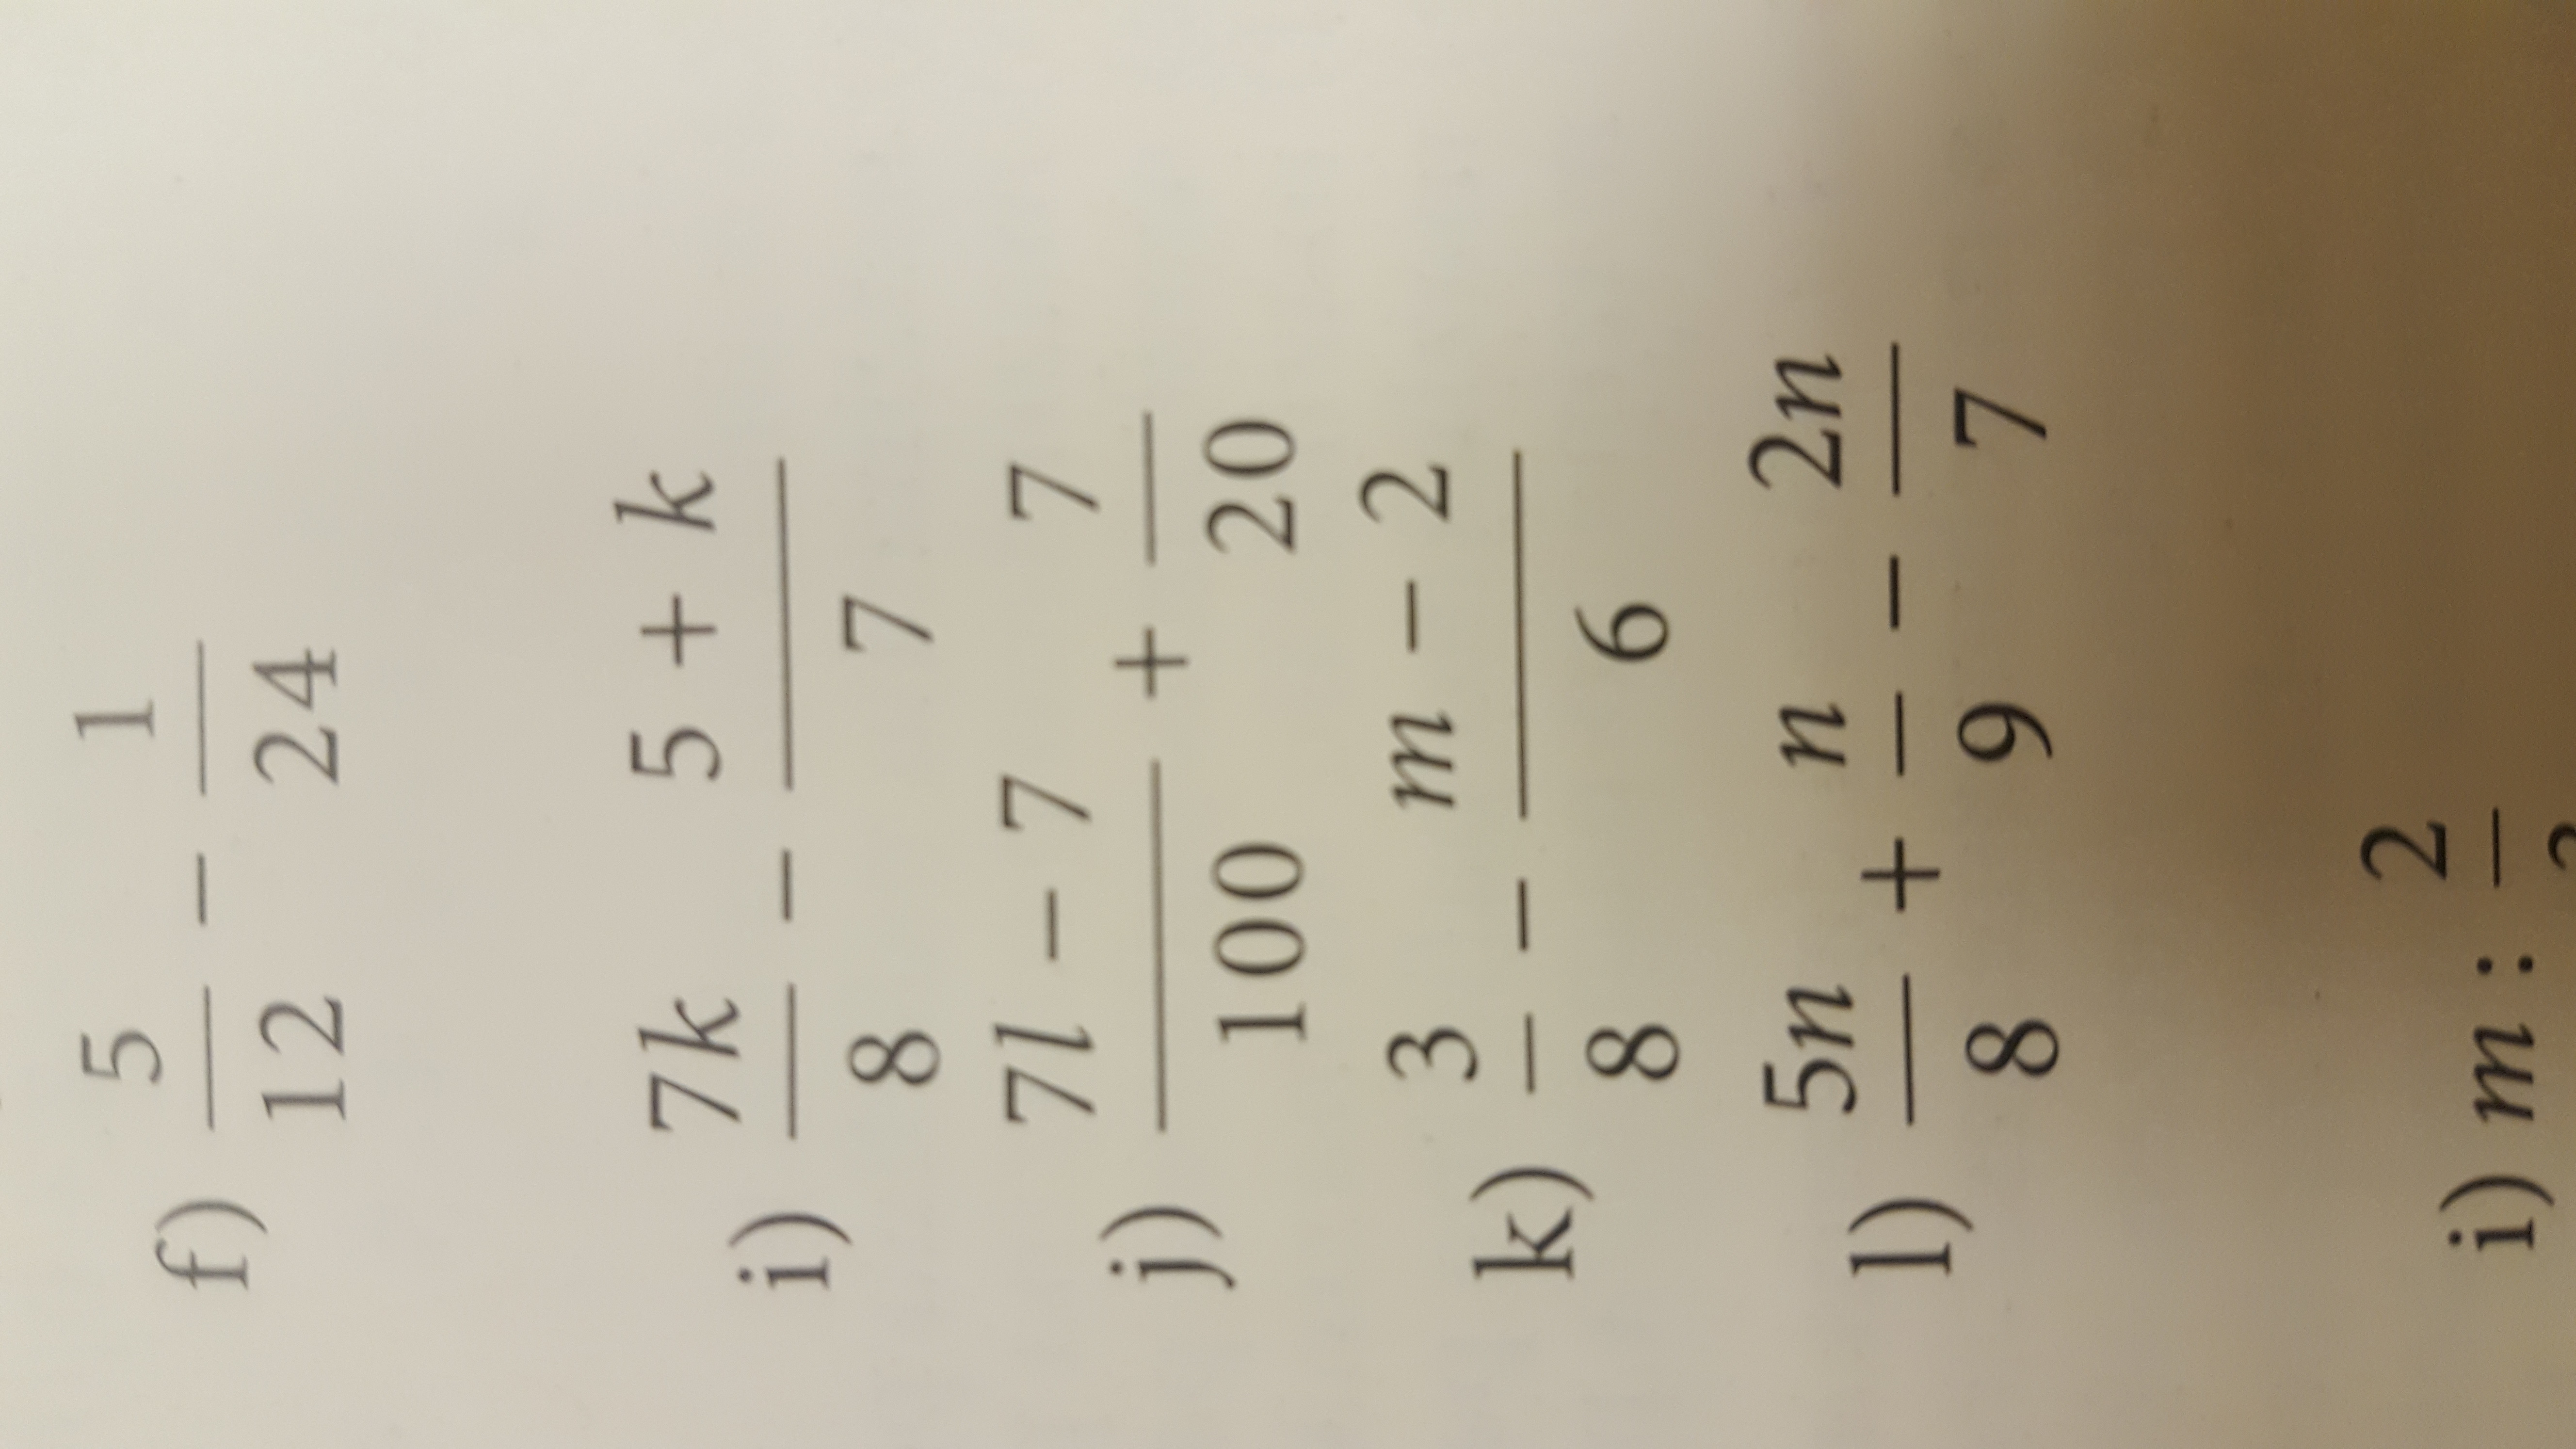 f) 5/12 − 1/24
i) 7k/8 − (5 + k)/7
j) (7l − 7)/100 + 7/20
k) 3/8 − (m − 2)/6
l) 5n/8 + n/9 − 2n/7
i) m : 2